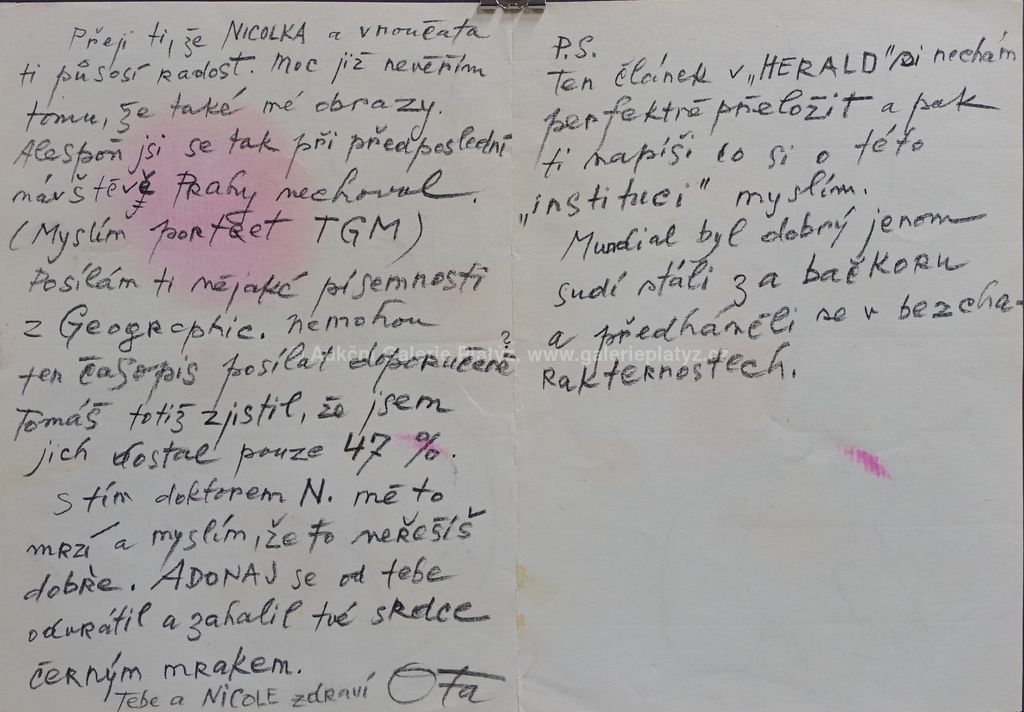 Přeji ti, že NICOLKA a vnoučata
ti působí radost. Moc již nevěřím
tomu, že také mé obrazy.
Alespoň jsi se tak při předposlední
návštěvě Prahy nechoval.
(Myslím portret TGM)
Posílám ti nějaké písemnosti
z Geographic. nemohou
ten časopis posílat doporučeně?
Tomáš totiž zjistil, že jsem
jich dostal pouze 47 %.
S tím doktorem N. mě to
mrzí a myslím, že to neřešíš
dobře. ADONAJ se od tebe
odvrátil a zahalil tvé srdce
černým mrakem.
Tebe a NICOLE zdraví OTa
P.S.
Ten článek v „HERALD" si nechám
perfektně přeložit a pak
ti napíši co si o této
„instituci" myslím.
Mundial byl dobrý jenom
sudí stáli za bačkoru
a předháněli se v bezcha-
rakternostech.
Aukční Galerie Platýz, www.galerieplatyz.cz